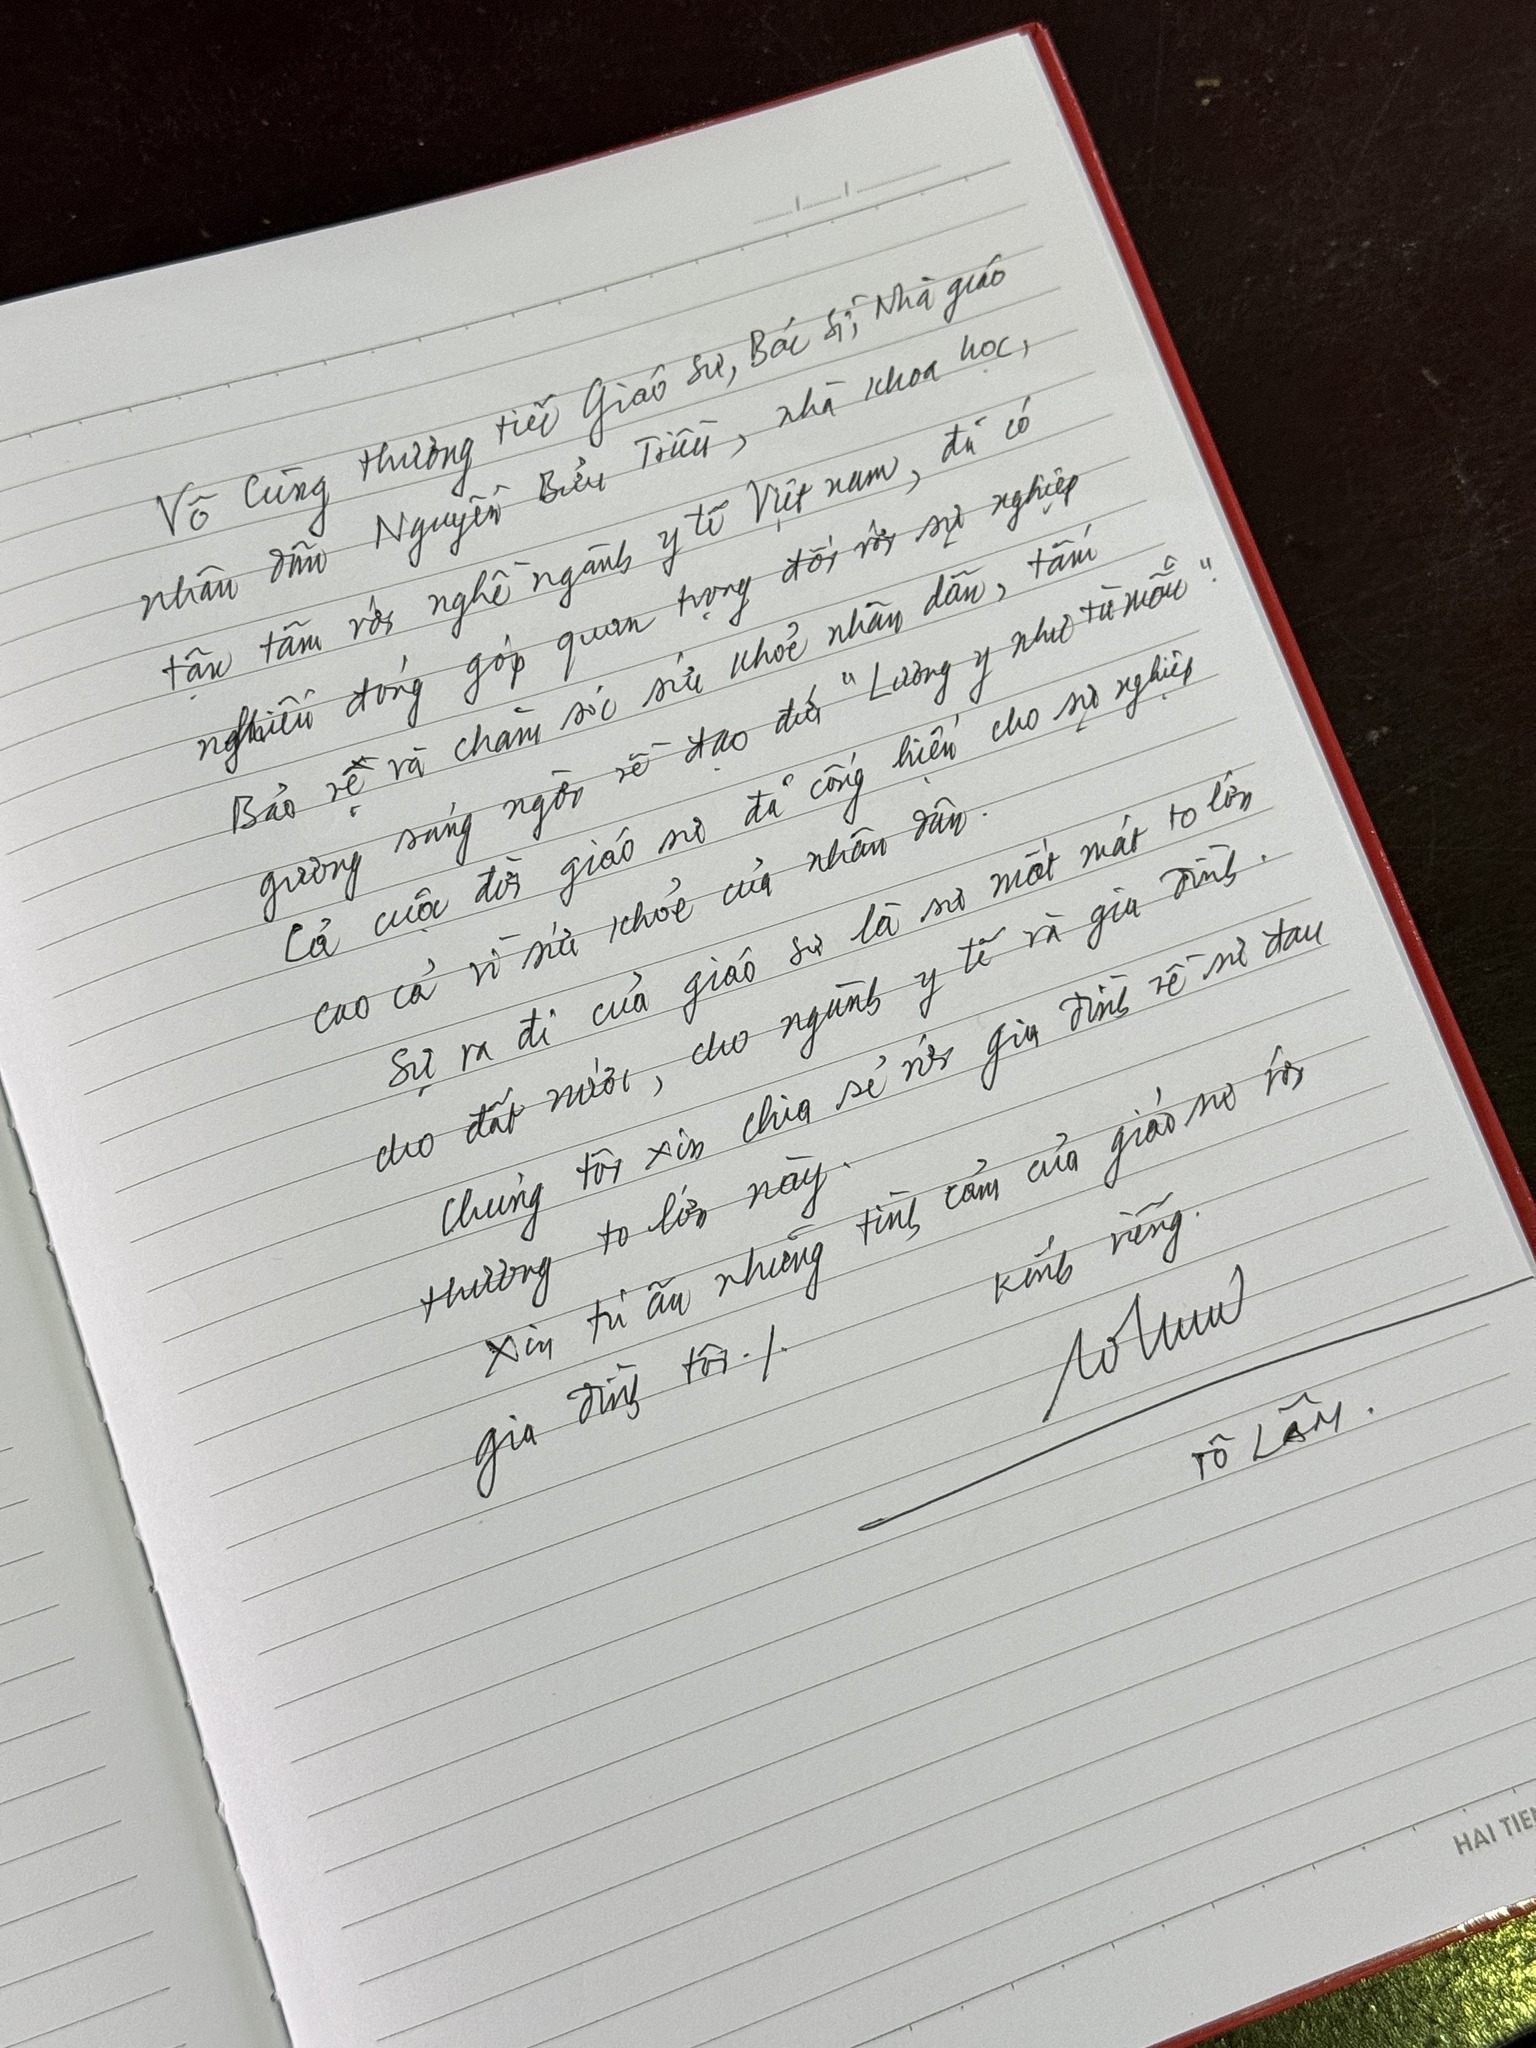 Vô cùng thương tiếc Giáo sư, Bác sĩ, Nhà giáo
nhân dân Nguyễn Bửu Triều, nhà khoa học,
tận tâm với nghề ngành y tế Việt nam, đã có
nghiều đóng góp quan trọng đối với sự nghiệp
Bảo vệ và chăm sóc sức khoẻ nhân dân, tấm
gương sáng ngời về đạo đức "Lương y như từ mẫu".
Cả cuộc đời giáo sư đã cống hiến cho sự nghiệp
cao cả vì sức khoẻ của nhân dân.
Sự ra đi của giáo sư là sự mất mát to lớn
cho đất nước, cho ngành y tế và gia đình.
Chúng tôi xin chia sẻ với gia đình về sự đau
thương to lớn này.
Xin tri ân những tình cảm của giáo sư với
gia đình tôi./.
Kính viếng.
TÔ LÂM.
HAI TIEN